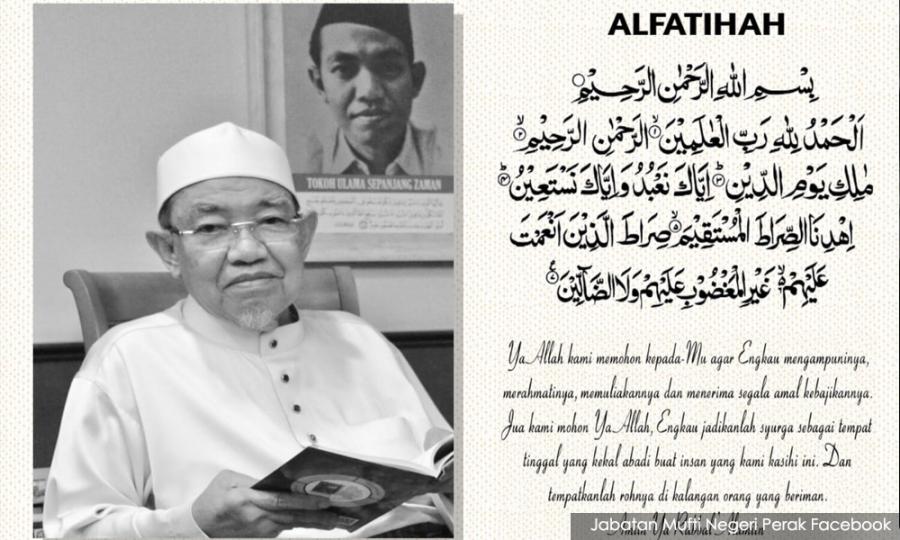 TOKOH ULAMA SEPANJANG ZAMAN
ALFATIHAH
بِسْمِ اللهِ الرَّحْمٰنِ الرَّحِيْمِ ۝
اَلْحَمْدُ لِلّٰهِ رَبِّ الْعٰلَمِيْنَ ۝١ الرَّحْمٰنِ الرَّحِيْمِ ۝٢
مٰلِكِ يَوْمِ الدِّيْنِ ۝٣ اِيَّاكَ نَعْبُدُ وَاِيَّاكَ نَسْتَعِيْنُ ۝٤
اِهْدِنَا الصِّرَاطَ الْمُسْتَقِيْمَ ۝٥ صِرَاطَ الَّذِيْنَ اَنْعَمْتَ
عَلَيْهِمْ ۝٦ غَيْرِ الْمَغْضُوْبِ عَلَيْهِمْ وَلَا الضَّآلِّيْنَ ۝٧
Ya Allah kami memohon kepada-Mu agar Engkau mengampuninya,
merahmatinya, memuliakannya dan menerima segala amal kebajikannya.
Jua kami mohon Ya Allah, Engkau jadikanlah syurga sebagai tempat
tinggal yang kekal abadi buat insan yang kami kasihi ini. Dan
tempatkanlah rohnya di kalangan orang yang beriman.
Amin Ya Rabbal 'Alamin
Jabatan Mufti Negeri Perak Facebook